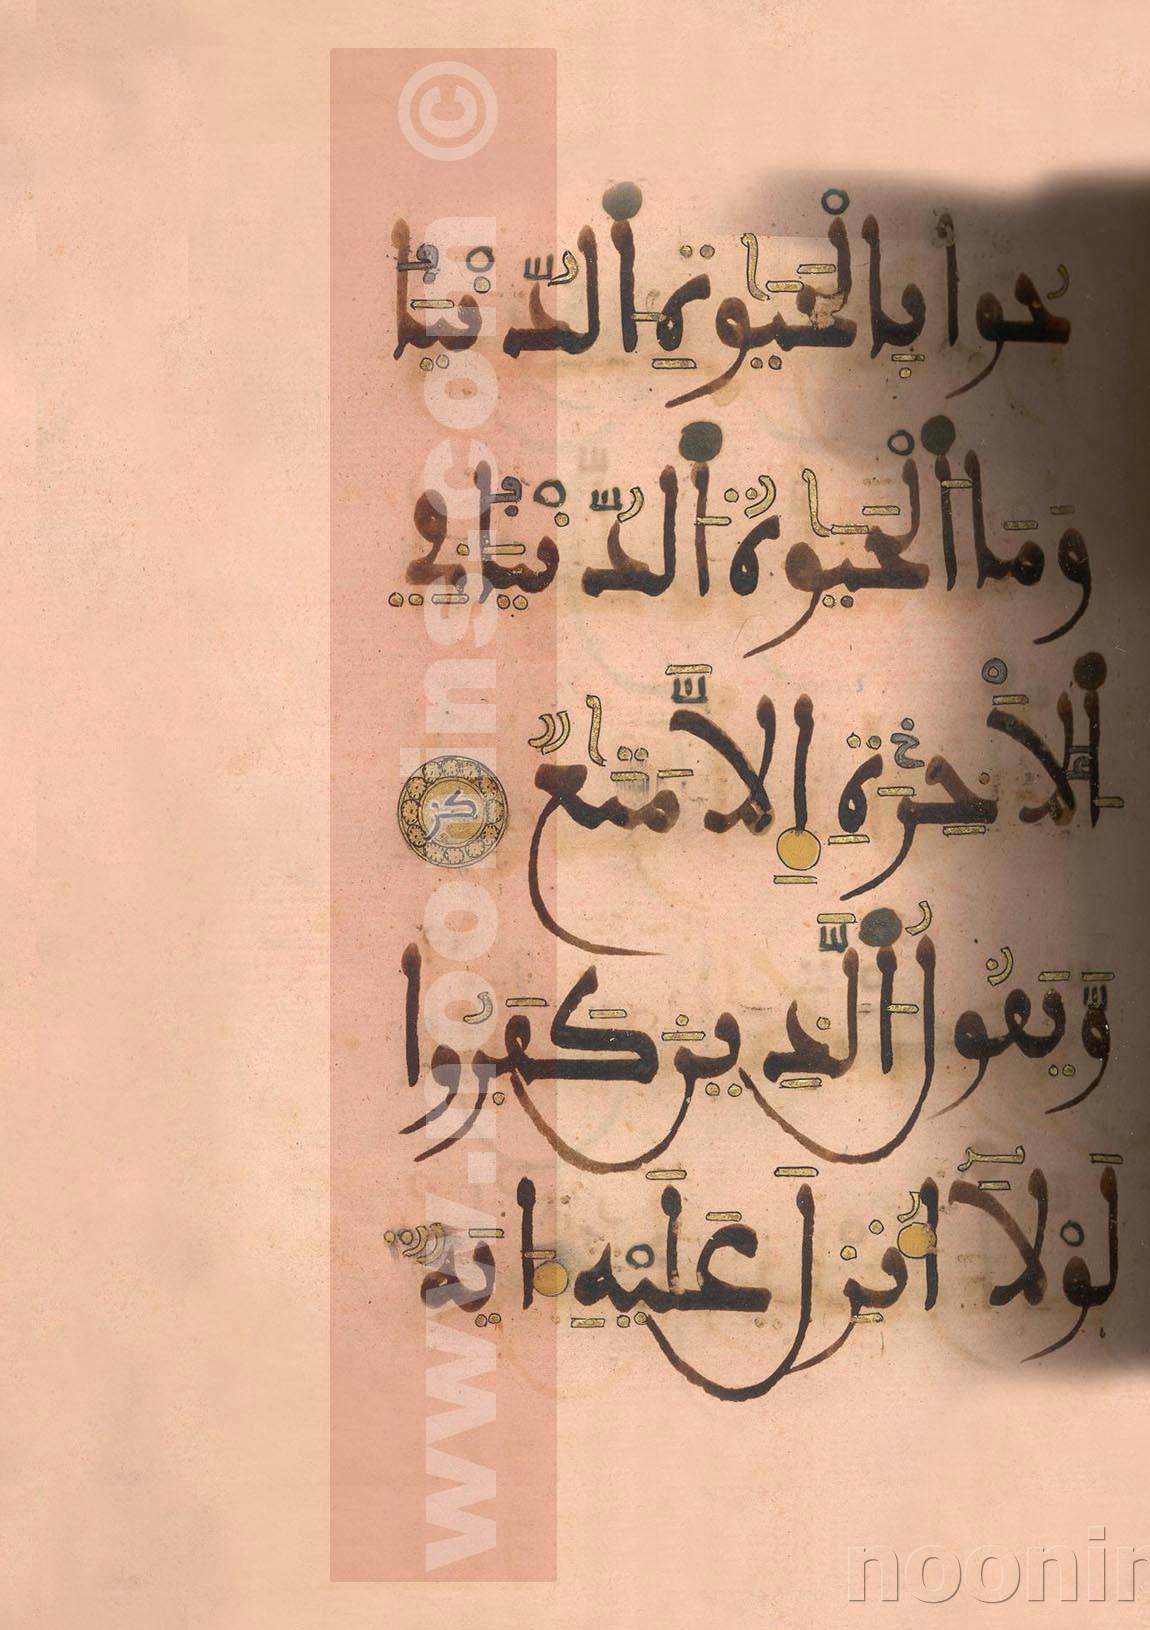 حوا بالحيوة الدنيا
وما الحيوة الدنيا في
الاخرة الا متع
كز
ويقول الذين كفروا
لولا انزل عليه اية
www.noonins.com ©
noonin